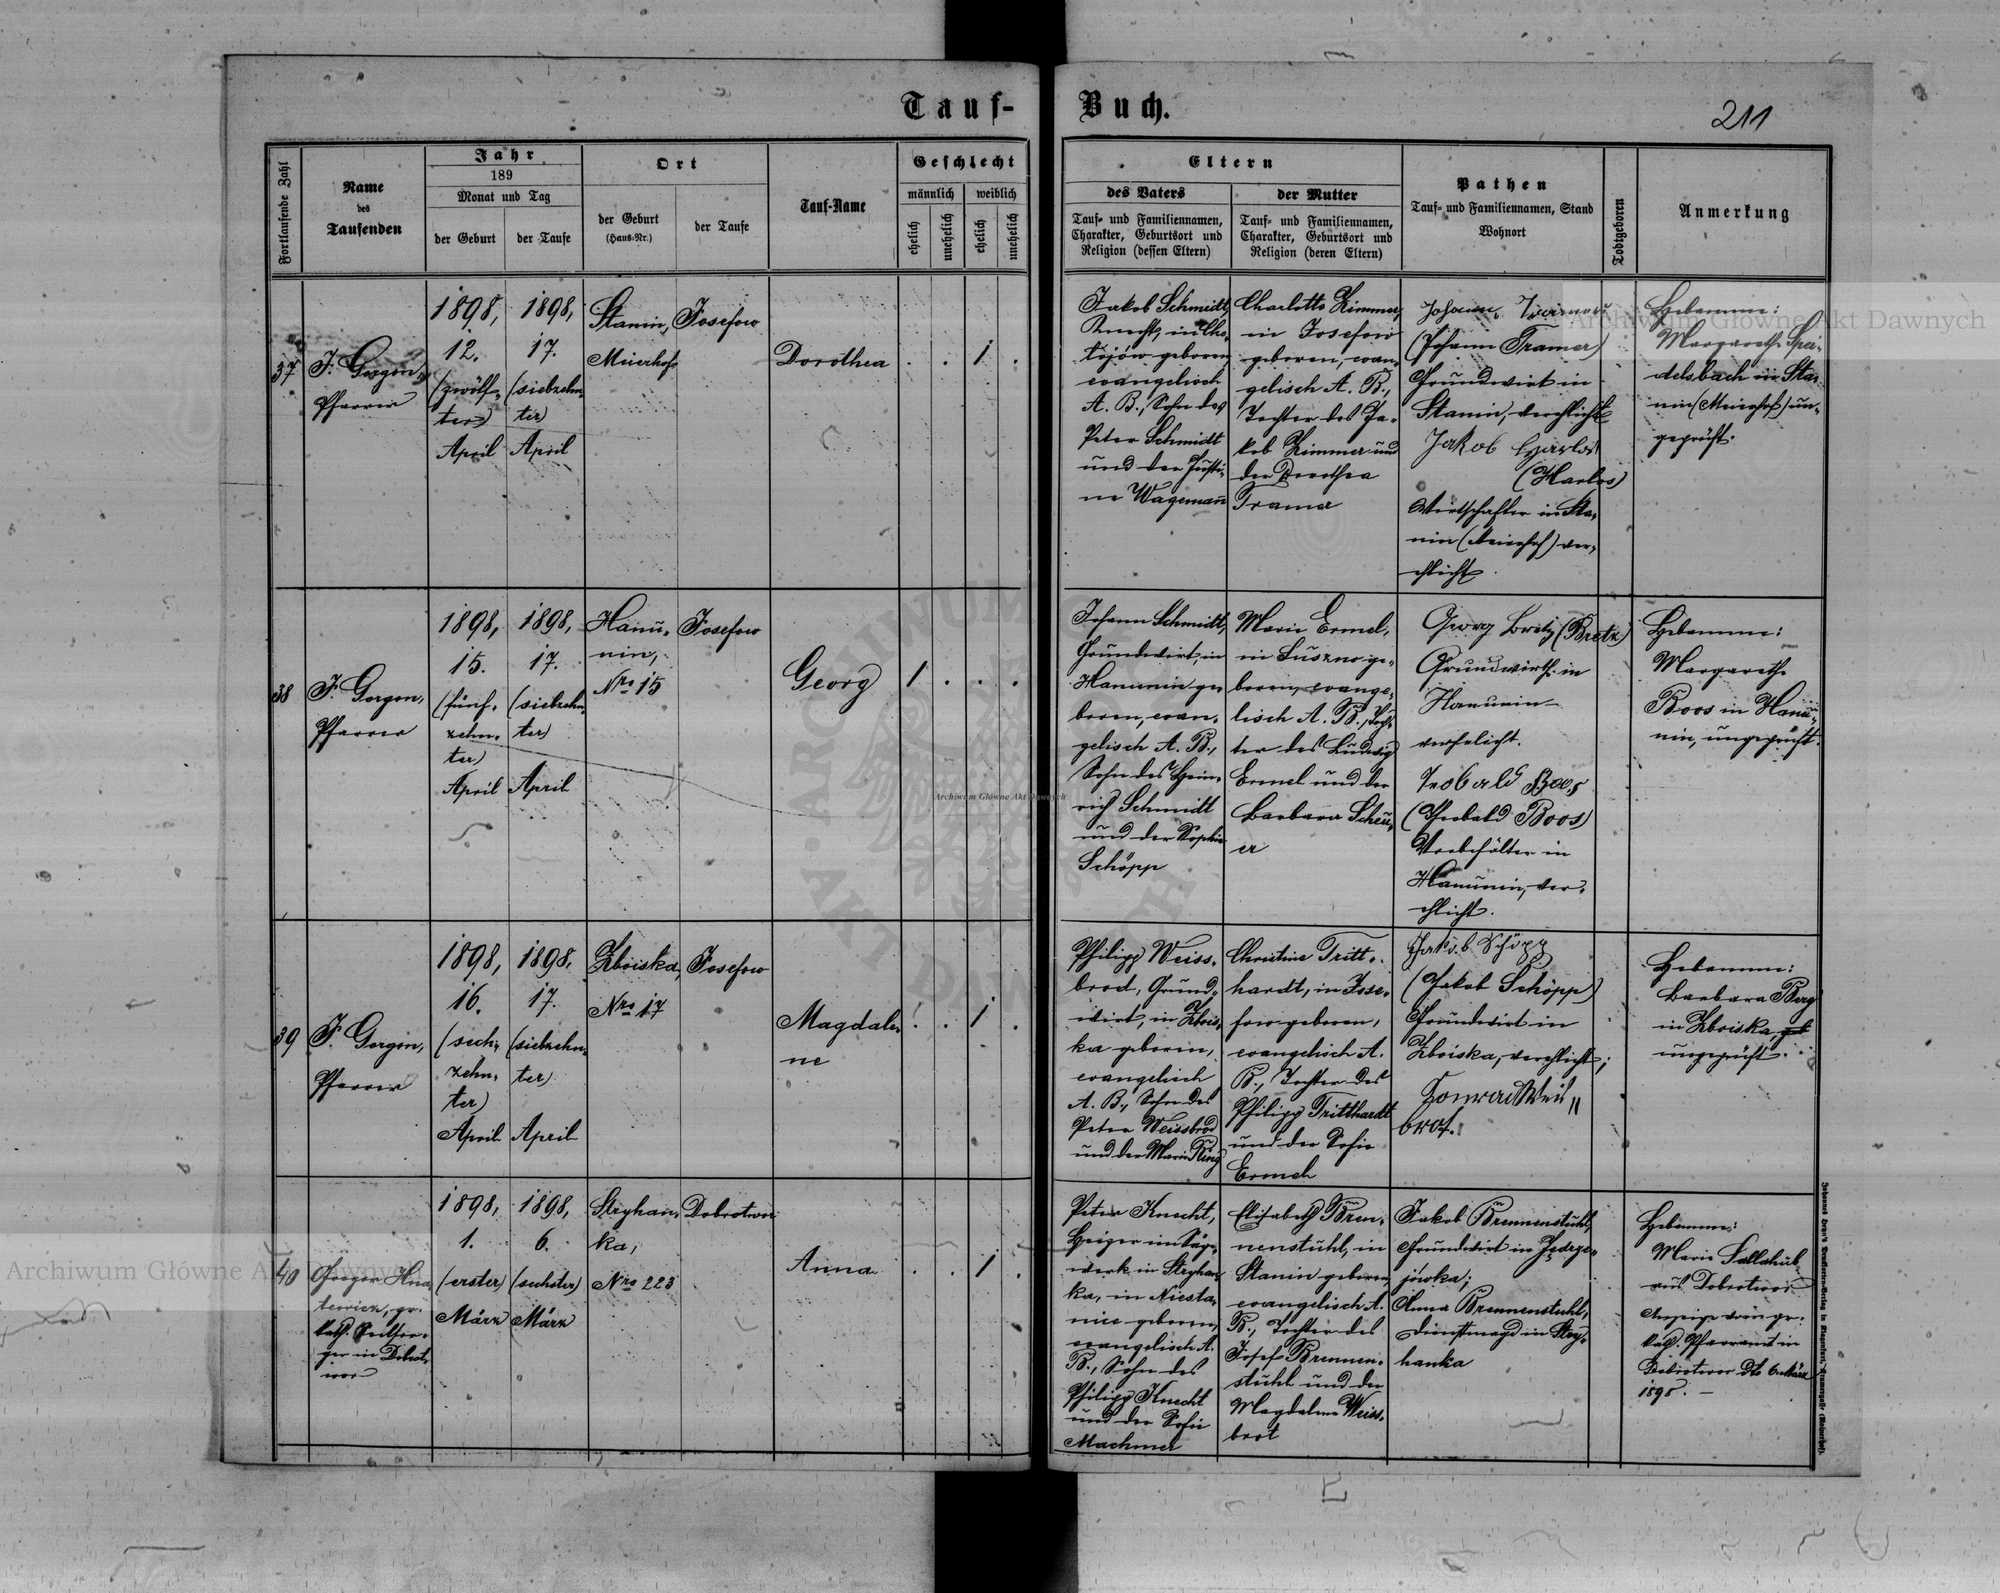 Tauf-Buch.
211
Fortlaufende Zahl
Name
des
Taufenden
Jahr
189
Monat und Tag
der Geburt
der Taufe
Ort
der Geburt
(Haus-Nr.)
der Taufe
Tauf-Name
Geschlecht
männlich
weiblich
ehelich
unehelich
ehelich
unehelich
Eltern
des Vaters
Tauf- und Familiennamen,
Charakter, Geburtsort und
Religion (dessen Eltern)
der Mutter
Tauf- und Familiennamen,
Charakter, Geburtsort und
Religion (deren Eltern)
Pathen
Tauf- und Familiennamen, Stand
Wohnort
Todtgeboren
Anmerkung
37
J. Gorgon,
Pfarrer
1898,
12.
(zwölf-
ter)
April
1898,
17.
(siebzehn-
ter)
April
Stanin,
Meierhof
Josefow
Dorothea
1
Jakob Schmidt,
Knecht, in Cho-
lojów geboren
evangelisch
A. B., Sohn des
Peter Schmidt
und der Justi-
ne Wagemañ
Charlotte Zimmer,
in Josefow
geboren, evan-
gelisch A. B.,
Tochter des Ja-
kob Zimmer und
der Dorothea
Tramer
Johann
(Johann Tramer)
Grundwirt in
Stanin, verehlicht
Jakob Harlos
(Harlos)
Wirtschafter in Sta-
nin (Meierhof) ver-
ehlicht.
Hebamme:
Margareth Spei-
delsbach in Sta-
nin (Meierhof) un-
geprüft.
38
J. Gorgon,
Pfarrer
1898,
15.
(fünf-
zehn-
ter)
April
1898,
17.
(siebzehn-
ter)
April
Hanu-
nin,
Nro 15
Josefow
Georg
1
Johann Schmidt,
Grundwirt, in
Hanunin ge-
boren, evan-
gelisch A. B.,
Sohn des Hein-
rich Schmidt
und der Sophie
Schöpp
Marie Ermel,
in Suszno ge-
boren, evange-
lisch A. B., Toch-
ter des Ludwig
Ermel und der
Barbara Scheu-
er
Georg Bretz (Bretz)
Grundwirth in
Hanunin
verhelicht.
Teobald Boos
(Theobald Boos)
Vorbehälter in
Hanunin, ver-
ehlicht.
Hebamme:
Margarethe
Boos in Hanu-
nin, ungeprüft.
39
J. Gorgon,
Pfarrer
1898,
16.
(sech-
zehn-
ter)
April
1898,
17.
(siebzehn-
ter)
April
Zboiska,
Nro 17
Josefow
Magdale-
ne
1
Philipp Weiss-
brod, Grund-
wirt, in Zbois-
ka geboren,
evangelisch
A. B., Sohn des
Peter Weissbrod
und der Marie Ring
Christine Tritt-
hardt, in Jose-
fow geboren,
evangelisch A.
B., Tochter des
Philipp Tritthardt
und der Sofie
Ermel
Jakob Schöpp
(Jakob Schöpp)
Grundwirt in
Zboiska, verehlicht;
Konrad Weis"
brot.
Hebamme:
Barbara Berg
in Zboiska,
ungeprüft.
40
Gregor Hna-
tewicz, gr.
kath. Seelsor-
ger in Dobrot-
wor
1898,
1.
(erster)
März
1898,
6.
(sechster)
März
Stryhan-
ka,
Nro 223
Dobrotwor
Anna
1
Peter Knecht,
Heizer im Säge-
werk in Stryhan-
ka, in Niesta-
nice geboren,
evangelisch A.
B., Sohn des
Philipp Knecht
und der Sofie
Machmer
Elisabeth Bren-
nenstuhl, in
Stanin geboren,
evangelisch A.
B., Tochter des
Josef Brennen-
stuhl und der
Magdalena Weiss-
brot
Jakob Brennenstuhl,
Grundwirt in Jedrze-
jówka;
Anna Brennenstuhl,
Dienstmagd in Stry-
hanka
Hebamme:
Marie
aus Dobrotwor
Anzeige vom gr.
kath. Pfarramt in
Dobrotwor dto 6. März
1898. —
Archiwum Główne Akt Dawnych
Archiwum Główne Akt Dawnych
Archiwum Główne Akt Dawnych